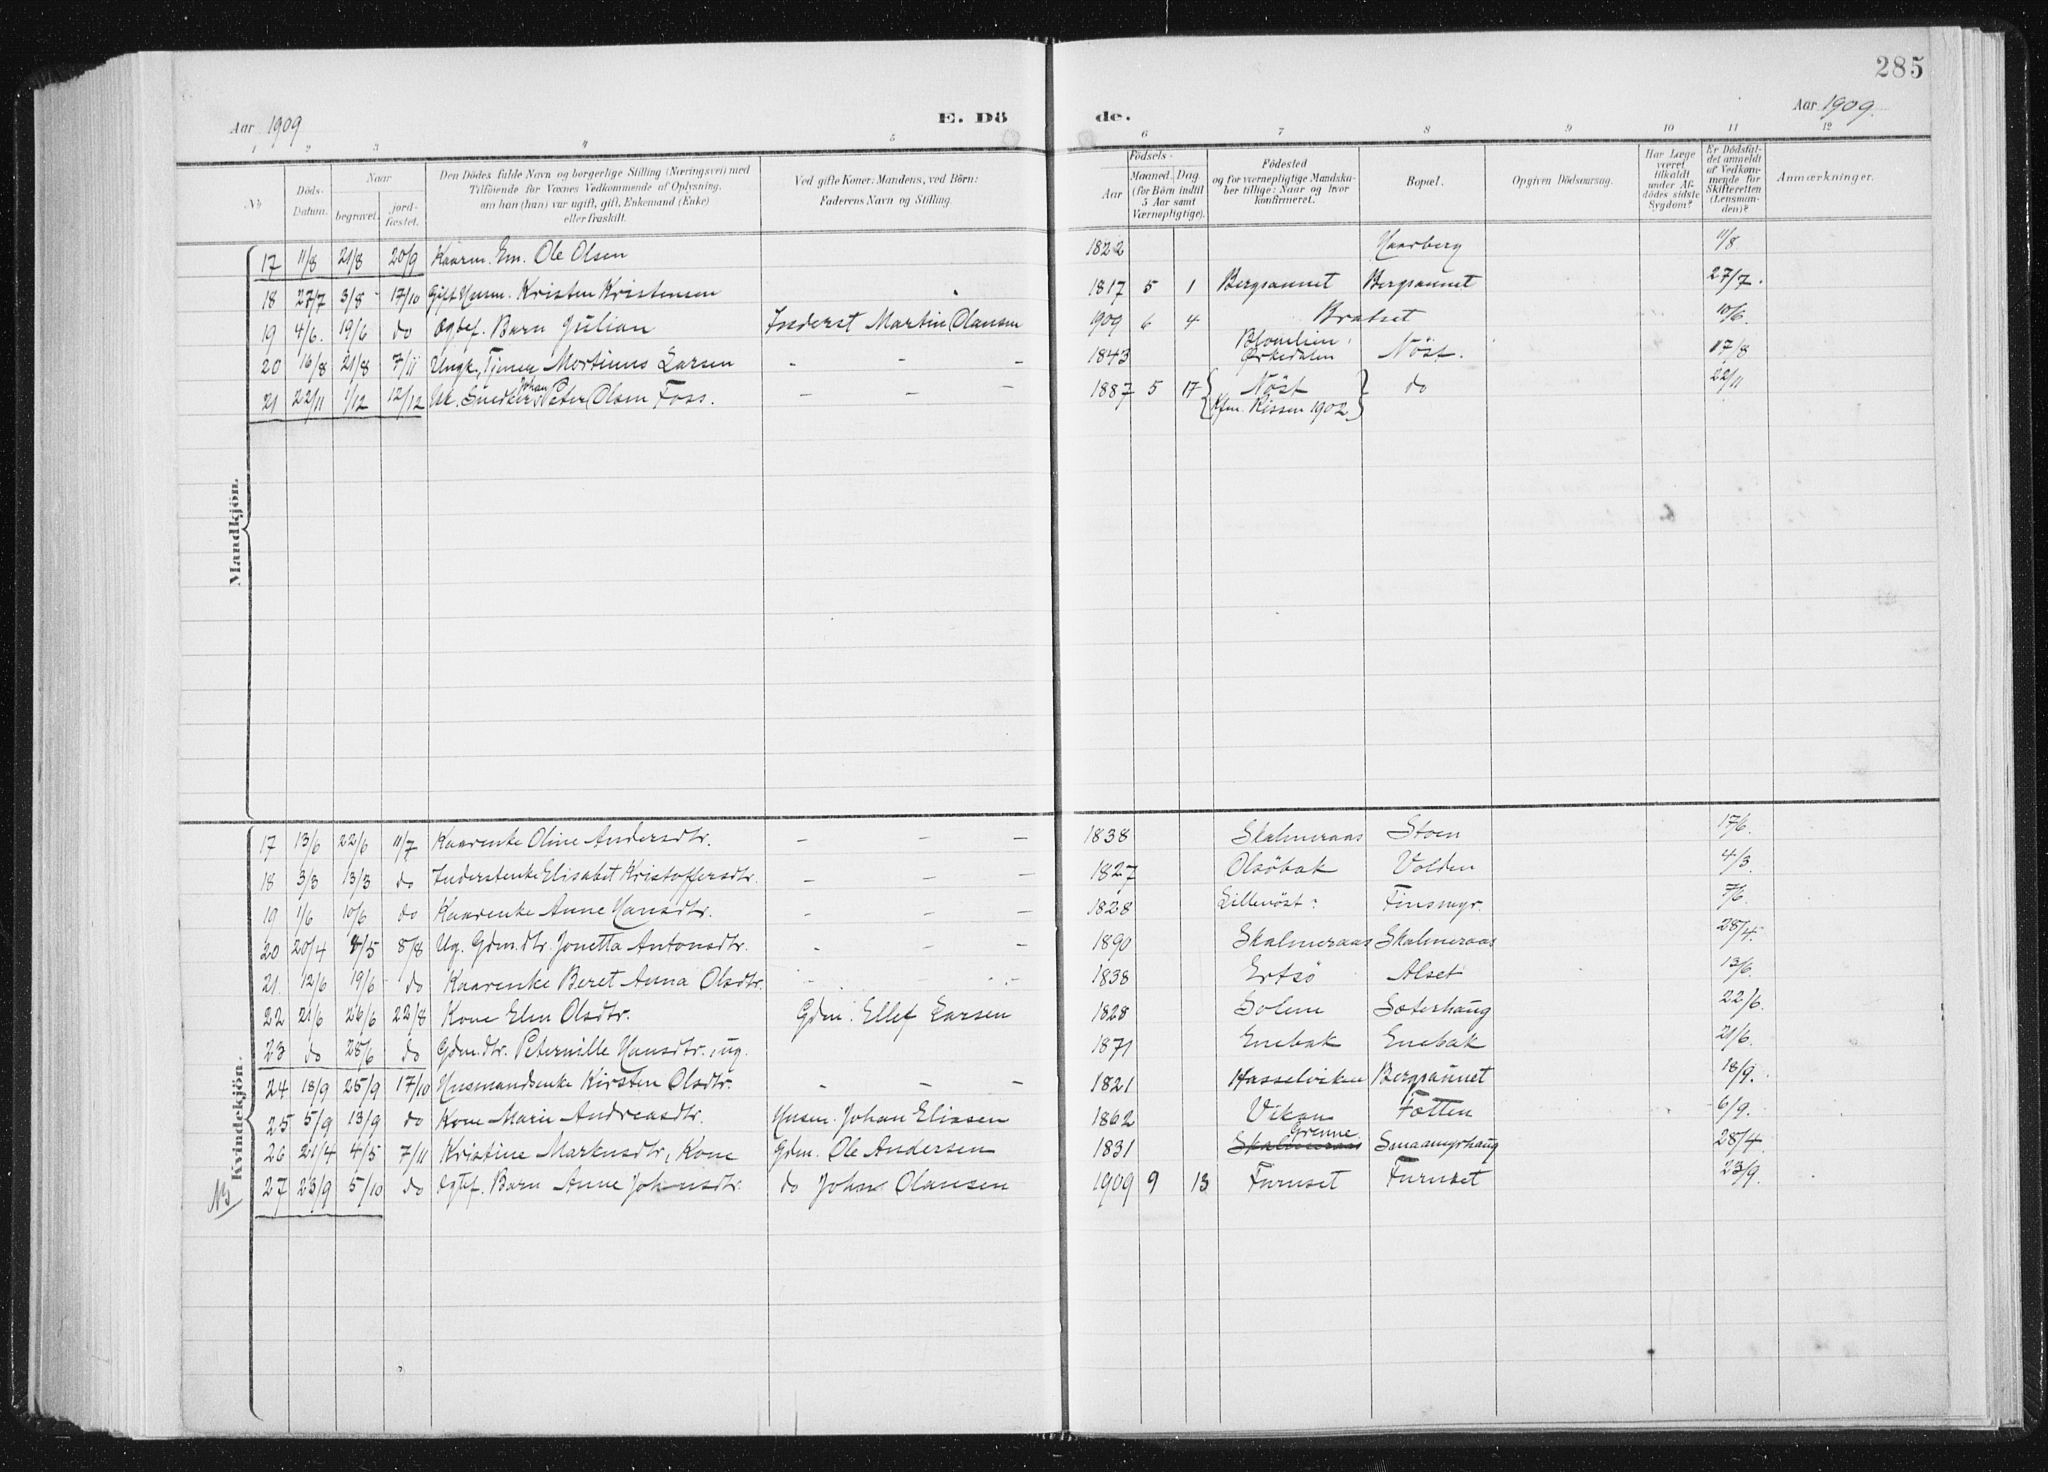 285
Aar 1909
E. Dö
de.
Aar 1909.
1 2 3 4 5 6 7 8 9 10 11 12
No
Döds-
Datum.
Naar
begravet.
jord-
fæstet.
Den Dödes fulde Navn og borgerlige Stilling (Næringsvei) med
Tilföiende for Voxnes Vedkommende af Oplysning,
om han (hun) var ugift, gift, Enkemand (Enke)
eller fraskilt.
Ved gifte Koner: Mandens, ved Börn:
Faderens Navn og Stilling.
Födsels-
Aar
Maaned. Dag.
(for Börn indtil
5 Aar samt
Værnepligtige).
Födested
og for værnepligtige Mandska-
ber tillige: Naar og hvor
konfirmeret.
Bopæl.
Opgiven Dödsaarsag.
Har Læge
været
tilkaldt
under Af-
dödes sidste
Sygdom?
Er Dödsfal-
det anmeldt
af Vedkom-
mende for
Skifteretten
(Lensman-
den)?
Anmærkninger.
Mandkjön.
17 11/8 21/8 20/9 Kaarm. Em. Ole Olsen 1822 Haarberg 11/8
18 27/7 3/8 17/10 Gift Husm. Kristen Kristensen 1817 5 1 Bergsaunet Bergsaunet 27/7.
19 4/6. 19/6 do Ægtef. Barn Julian Inderst Martin Olausen 1909 6 4 Bratset 10/6.
20 16/8 21/8 7/11 Ungk, Tjener Mortinus Larsen - - - 1843 Blomlien, Ørkedalen Nöst. 17/8
21 22/11 1/12 12/12 Uk. Snedker Johan Peter Olsen Foss. - - - 1887 5 17 { Nöst } do 22/11
Kfm. Rissen 1902
Kvindekjön.
17 13/6 22/6 11/7 Kaarenke Oline Andersdtr. - - - 1838 Skalmeraas Stoen 17/6.
18 3/3 13/3 do Inderstenke Elisabet Kristoffersdtr. - - - 1827 Olsöbak Volden 4/3.
19 1/6 10/6 do Kaarenke Anne Hansdtr. - - - 1828 Lillenöst: Finsmyr. 7/6.
20 20/4 8/5 8/8 Ug. Gdm.dtr. Jonetta Antonsdtr. - - - 1890 Skalmeraas Skalmeraas 28/4.
21 12/6 19/6 do Kaarenke Beret Anna Olsdtr. - - 1838 Ertsö Alset 13/6.
22 21/6 26/6 22/8 Kone Elen Olsdtr. Gdm. Ellef Larsen 1828 Solem Sæterhaug 22/6.
23 do 28/6 do Gdm.dtr. Peternille Hansdtr., ug. 1871 Enebak Enebak 21/6.
24 18/9 25/9 17/10 Husmandsenke Kirsten Olsdtr. - - - 1821 Hasselviken Bergsaunet 18/9.
25 5/9 13/9 do Kone Marie Andreasdtr. Husm. Johan Eliasen 1862 Vikan Fætten 6/9.
26 21/4 4/5 7/11 Kristine Markusdtr, Kone Gdm. Ole Andersen 1831 Skalmeraas Grenne Smaamyrhaug 28/4.
NB 27 23/9 5/10 do Ægtef. Barn Anne Johnsdtr. do John Olausen 1909 9 13 Furuset Furuset 23/9.